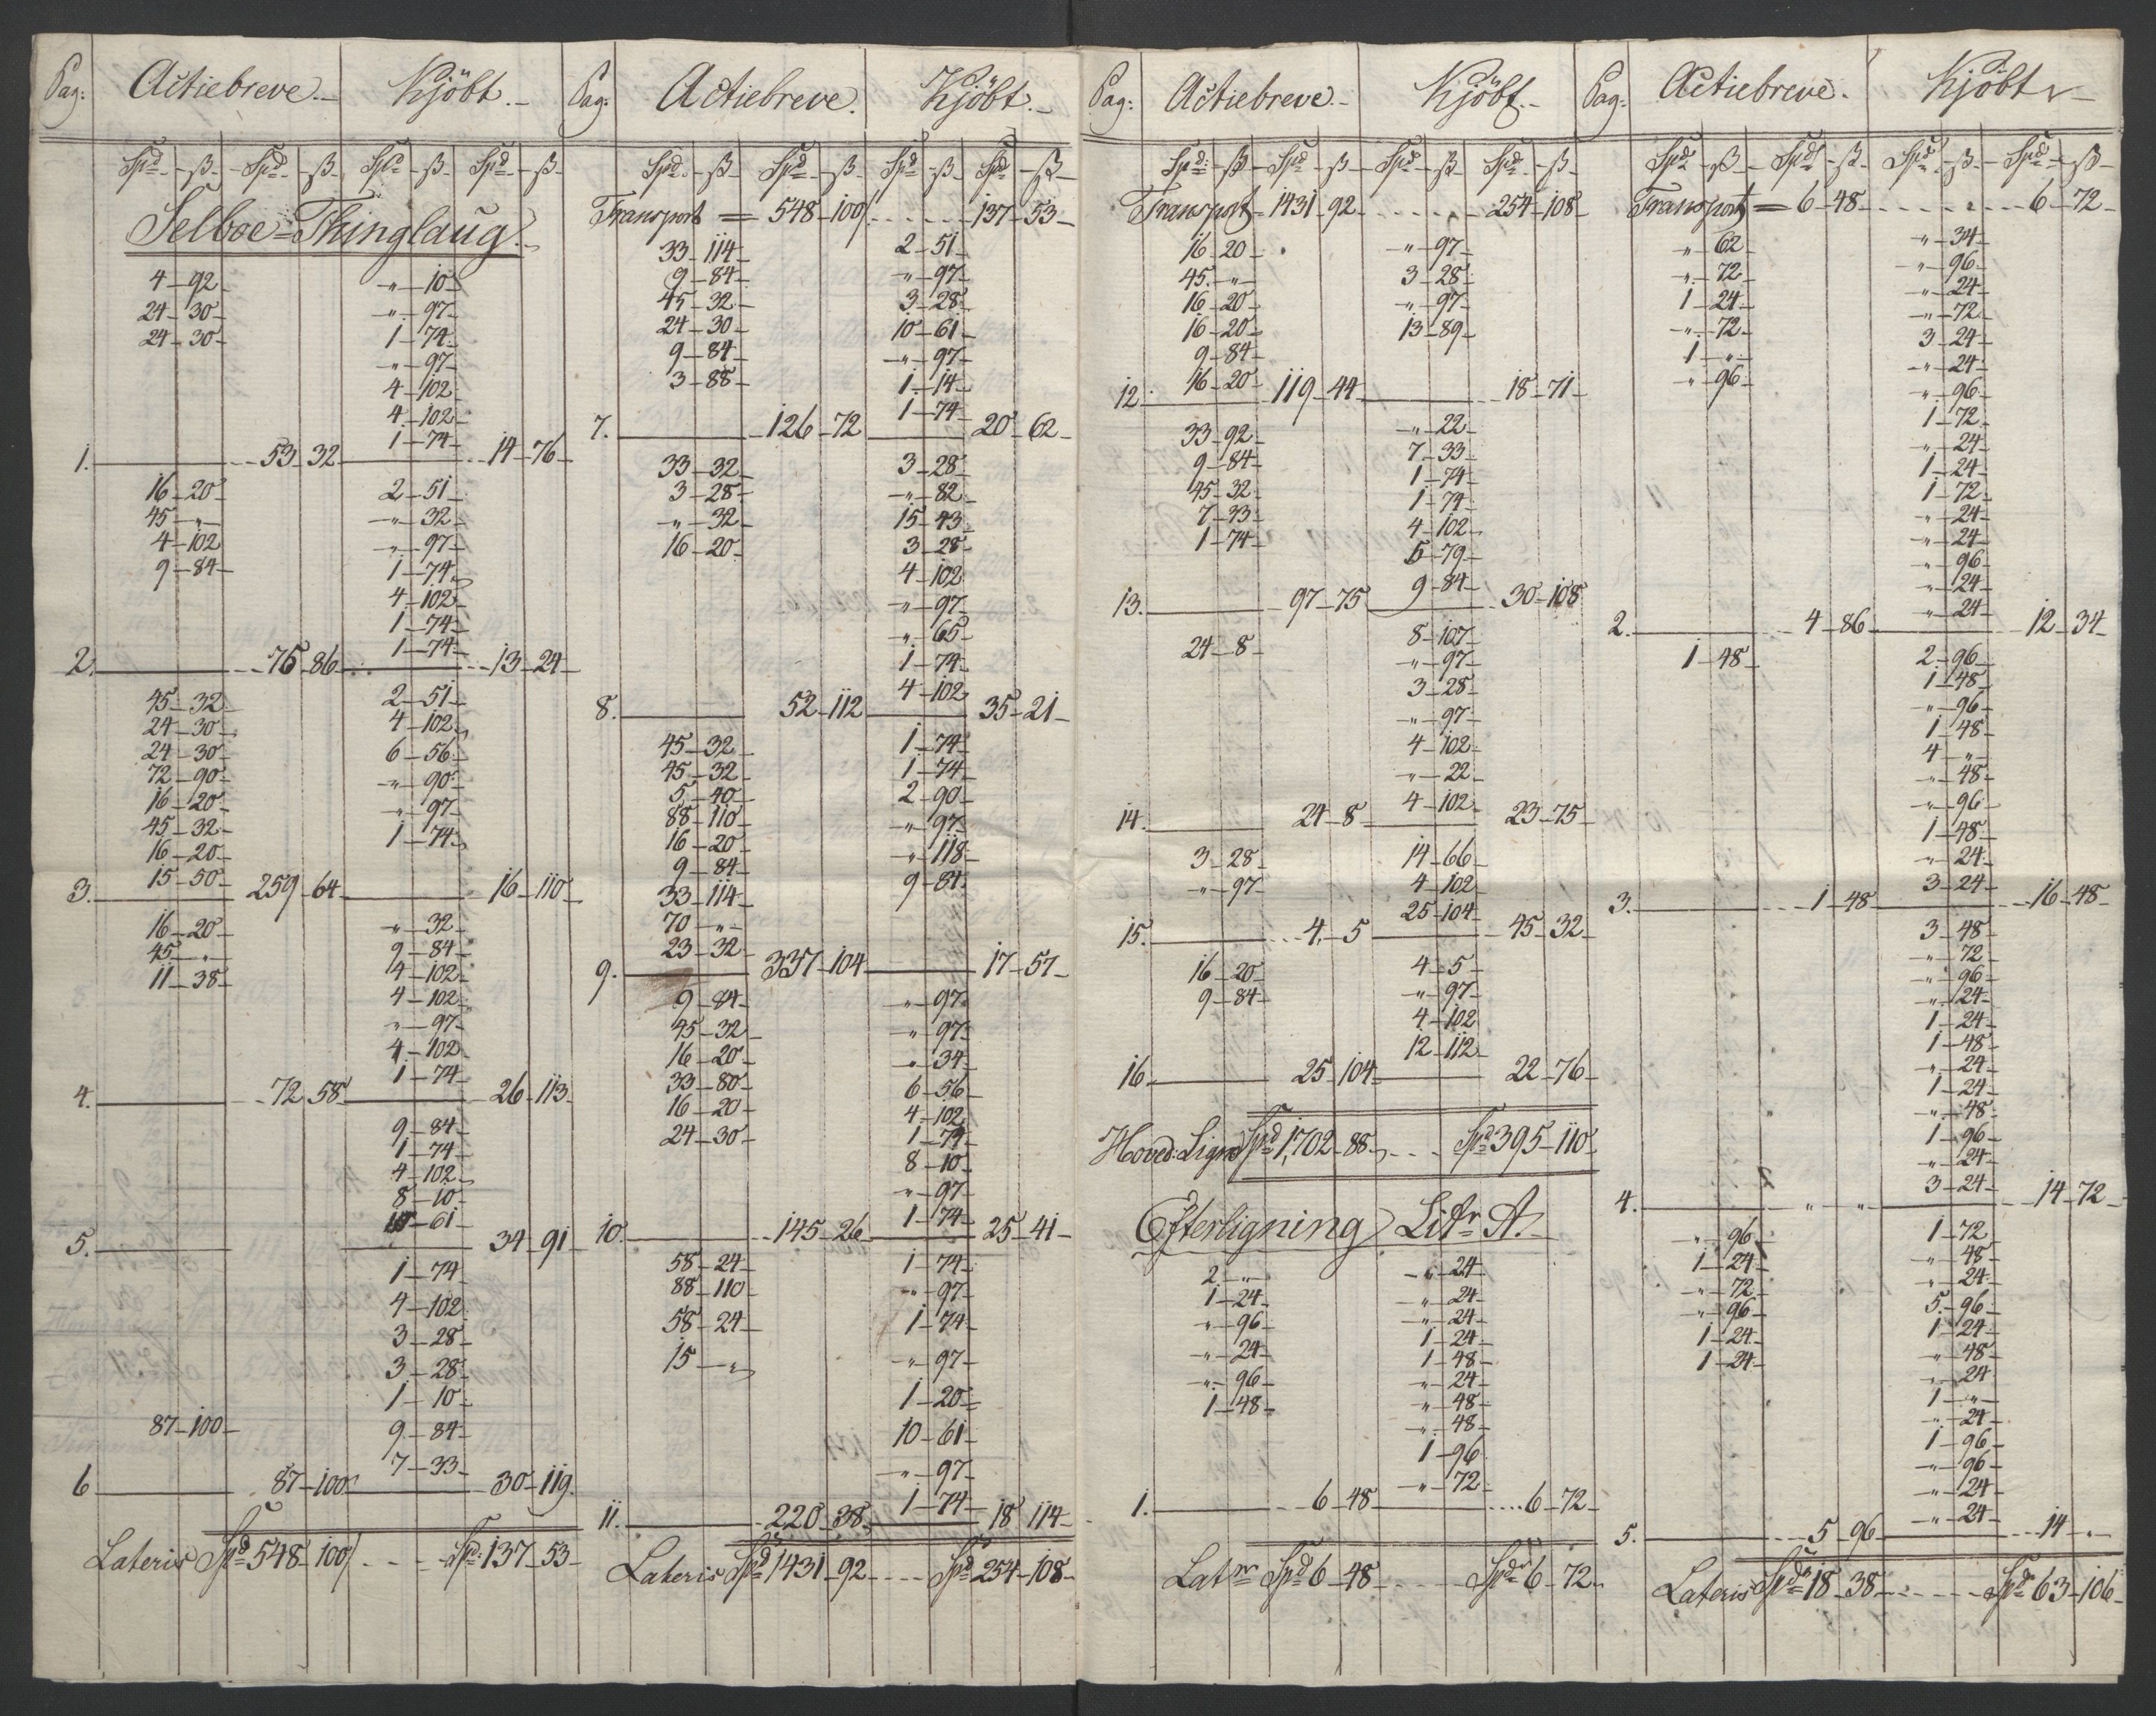 Pag: Actiebreve. Kjöbt.
Spd ß Spd ß Spd ß Spd ß
Selboe Thinglaug.
4 92 " 10
24 30 " 97
24 30 1 74
" 97
4 102
4 102
1 74
1. 53 32 14 76
16 20 2 51
45 " " 32
4 102 " 97
9 84 1 74
4 102
1 74
1 74
2. 75 86 13 24
45 32 2 51
24 30 4 102
24 30 6 56
72 90 " 90
16 20 " 97
45 32 1 74
16 20
15 50
3. 259 64 16 110
16 20 " 32
45 " 9 84
11 38 4 102
4 102
" 97
4 102
1 74
4. 72 58 26 113
9 84
1 74
4 102
8 10
10 61
5. 34 91
1 74
4 102
3 28
3 28
1 10
87 100 9 84
7 33
6 87 100 30 119
Lateris Spd 548 100 Spd 137 53
Pag: Actiebreve. Kjöbt.
Spd ß Spd ß Spd ß Spd ß
Transport 548 100 137 53
33 114 2 51
9 84 " 97
45 32 3 28
24 30 10 61
9 84 " 97
3 88 1 14
1 74
7. 126 72 20 62
33 32 3 28
3 28 " 82
" 32 15 43
16 20 3 28
4 102
" 97
" 65
1 74
4 102
8. 52 112 35 21
45 32 1 74
45 32 1 74
5 40 2 90
88 110 " 97
16 20 " 118
9 84 9 84
33 114
70 "
23 32
9. 337 104 17 57
9 84 " 97
45 32 " 97
16 20 " 34
33 80 6 56
16 20 4 102
24 30 1 74
8 10
" 97
1 74
10. 145 26 25 41
58 24 1 74
88 110 " 97
58 24 1 74
15 " " 97
1 20
10 61
" 97
1 74
11. 220 38 18 114
Lateris Spd 1431 92 Spd 254 108
Pag: Actiebreve Kjöbt.
Spd: ß Spd ß Spd ß Spd ß
Transport 1431 92 254 108
16 20 " 97
45 " 3 28
16 20 " 97
16 20 13 89
9 84
16 20
12. 119 44 18 71
33 92 " 22
9 84 7 33
45 32 1 74
7 33 1 74
1 74 4 102
5 79
9 84
13. 97 75 30 108
24 8 8 107
" 97
3 28
" 97
4 102
" 22
4 102
14. 24 8 23 75
3 28 14 66
" 97 4 102
25 104
15. 4 5 45 32
16 20 4 5
9 84 " 97
4 102
12 112
16 25 104 22 76
Hoved: Lign Spd 1,702 88 Spd 395 110
Efterligning Litr A.
2 " " 24
1 24 " 24
" 96 " 24
" 24 1 24
" 96 1 48
1 48 " 24
" 48
" 48
1 96
" 72
1. 6 48 6 72
Latr Spd 6 48 Spd 6 72
Pag: Actiebreve. Kjöbt
Spd ß Spd ß Spd ß Spd ß
Transport 6 48 6 72
" 62 " 34
" 72 " 96
1 24 " 24
" 72 " 72
1 " 3 24
" 96 " 24
" 96
1 72
" 24
1 24
1 72
" 24
" 24
" 96
" 24
" 24
2. 4 86 12 34
1 48 2 96
1 48
" 96
1 48
4 "
" 48
" 96
1 48
" 24
3 24
3. 1 48 16 48
3 48
" 72
" 96
" 24
1 24
1 48
" 24
1 24
" 48
1 96
" 24
3 24
4. " " 14 72
" 96 1 72
1 24 " 48
" 72 " 24
" 96 5 96
1 24 1 24
1 24 " 48
" 24
1 "
" 24
1 96
" 96
" 24
" 24
5. 5 96 14 "
Lateris Spd 18 38 Spd 63 106